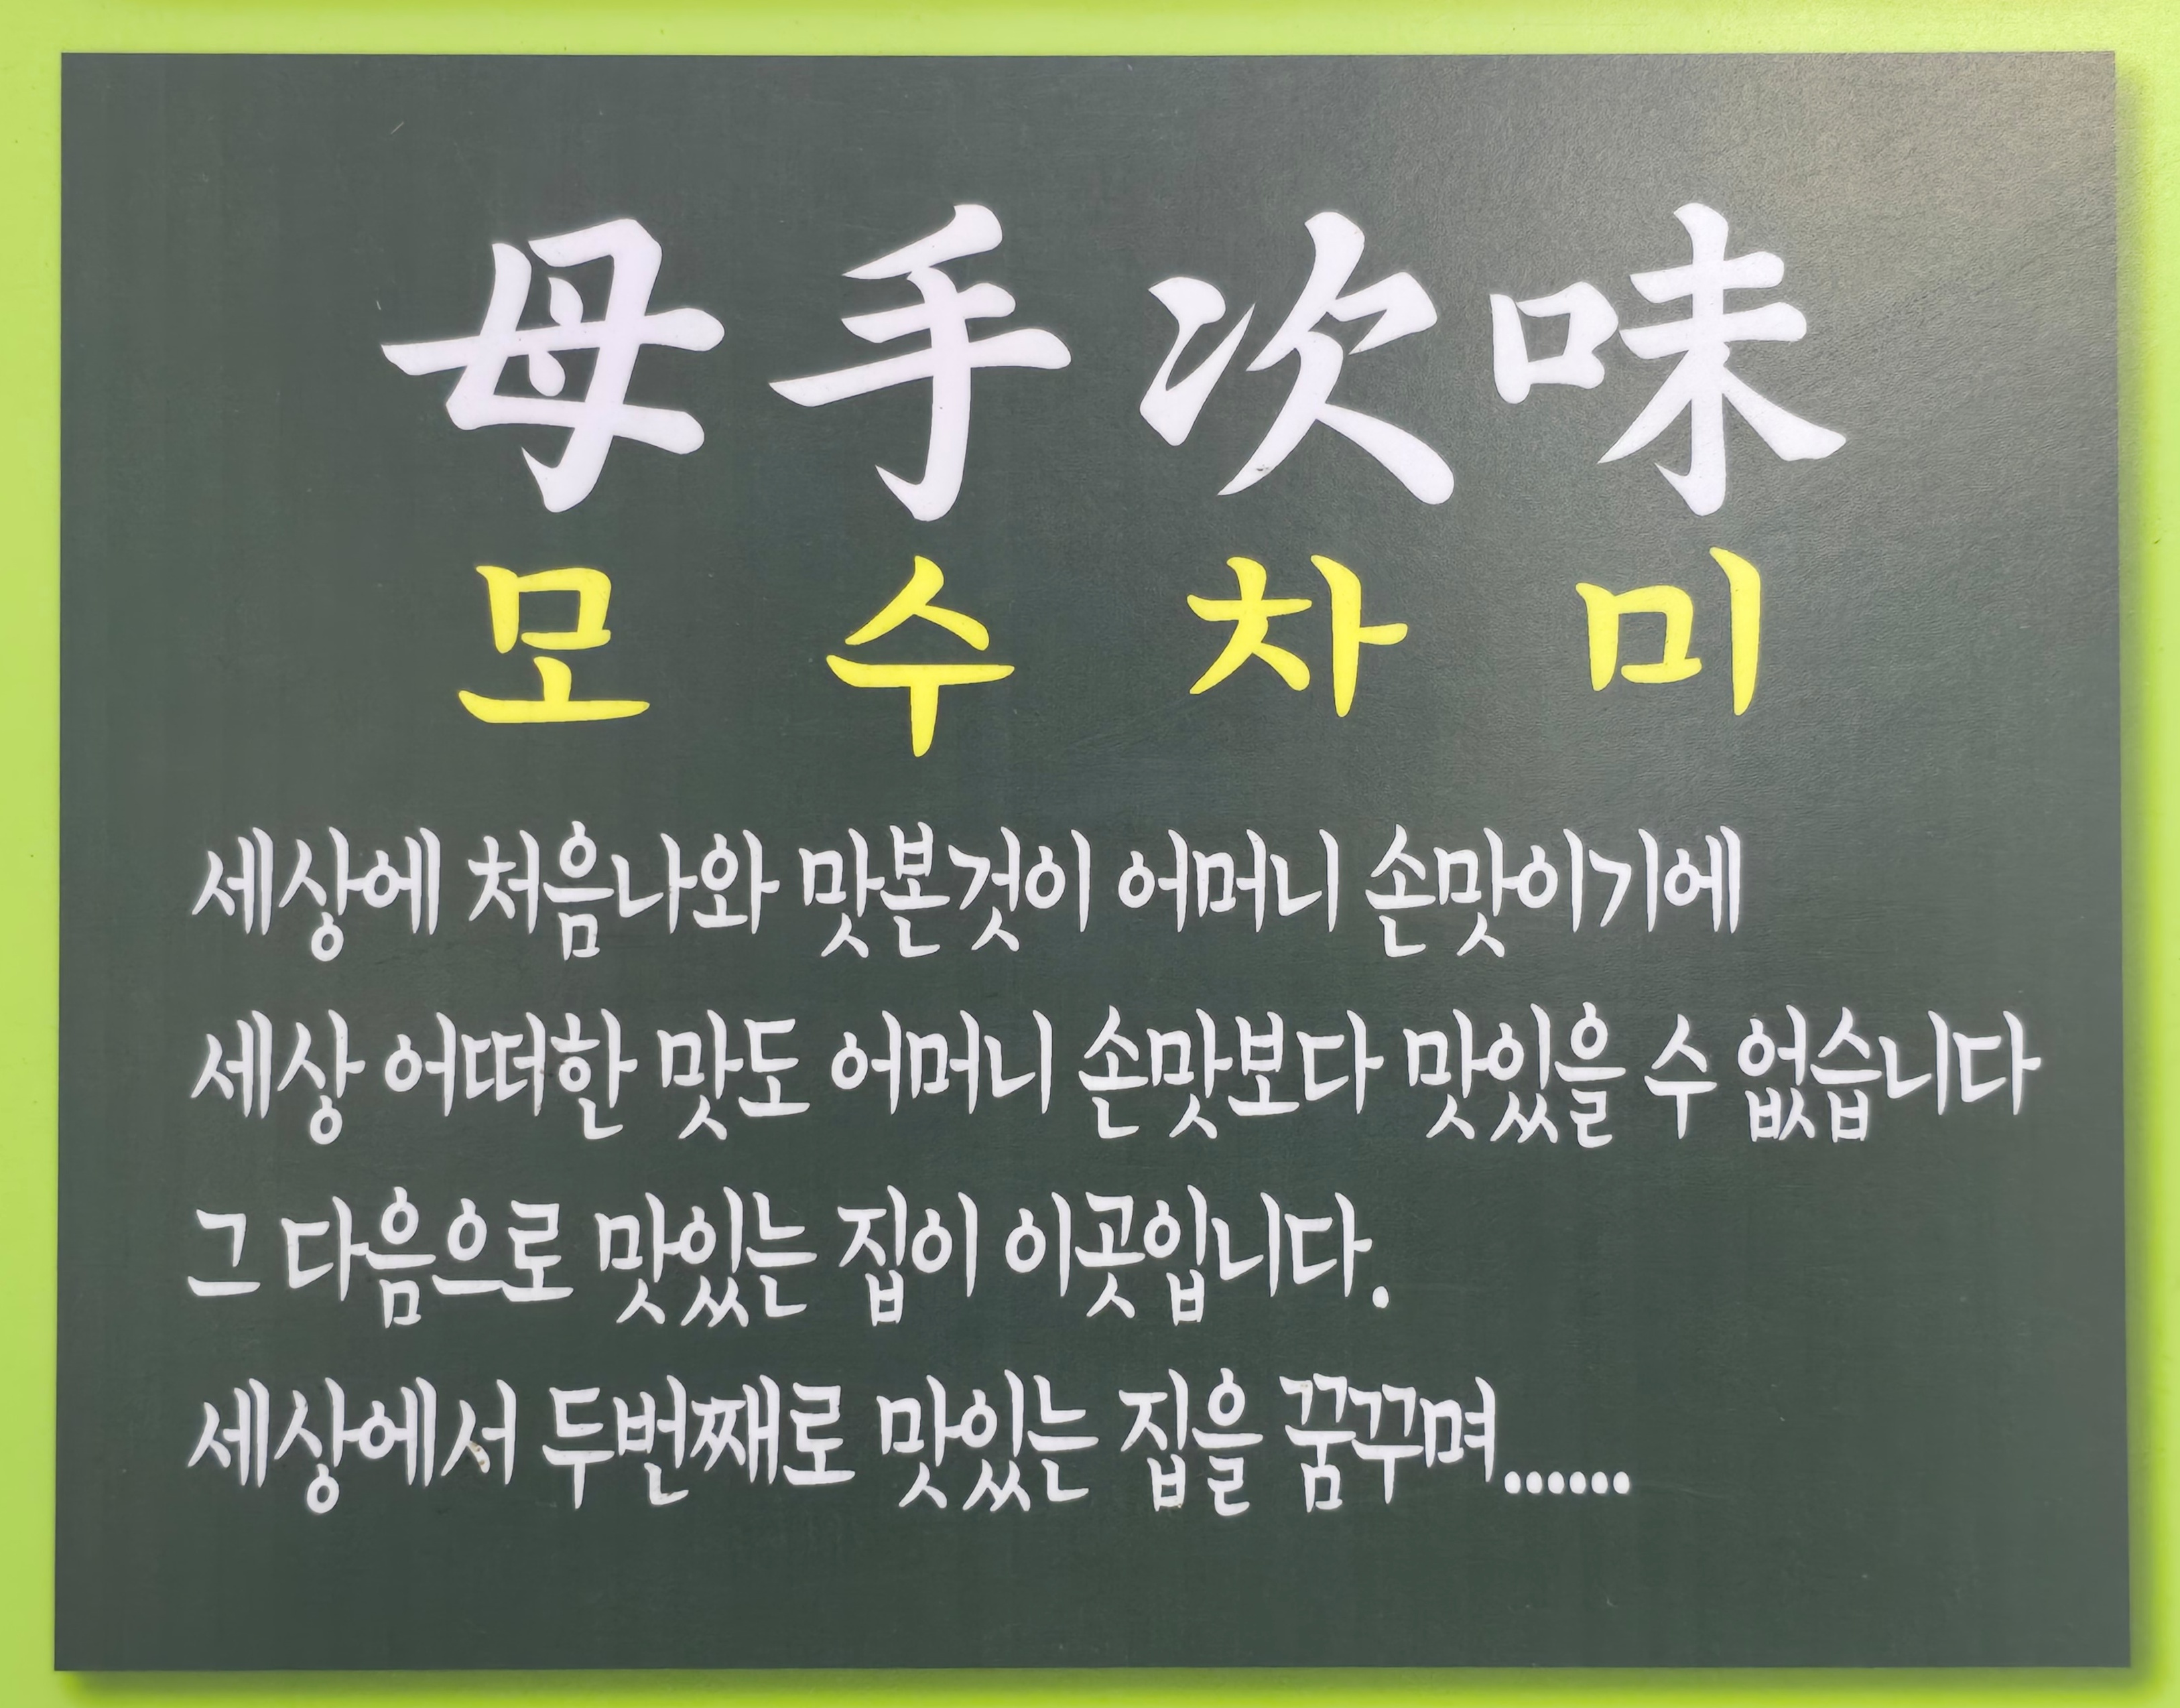 母手次味
모 수 차 미
세상에 처음나와 맛본것이 어머니 손맛이기에
세상 어떠한 맛도 어머니 손맛보다 맛있을 수 없습니다
그 다음으로 맛있는 집이 이곳입니다.
세상에서 두번째로 맛있는 집을 꿈꾸며......